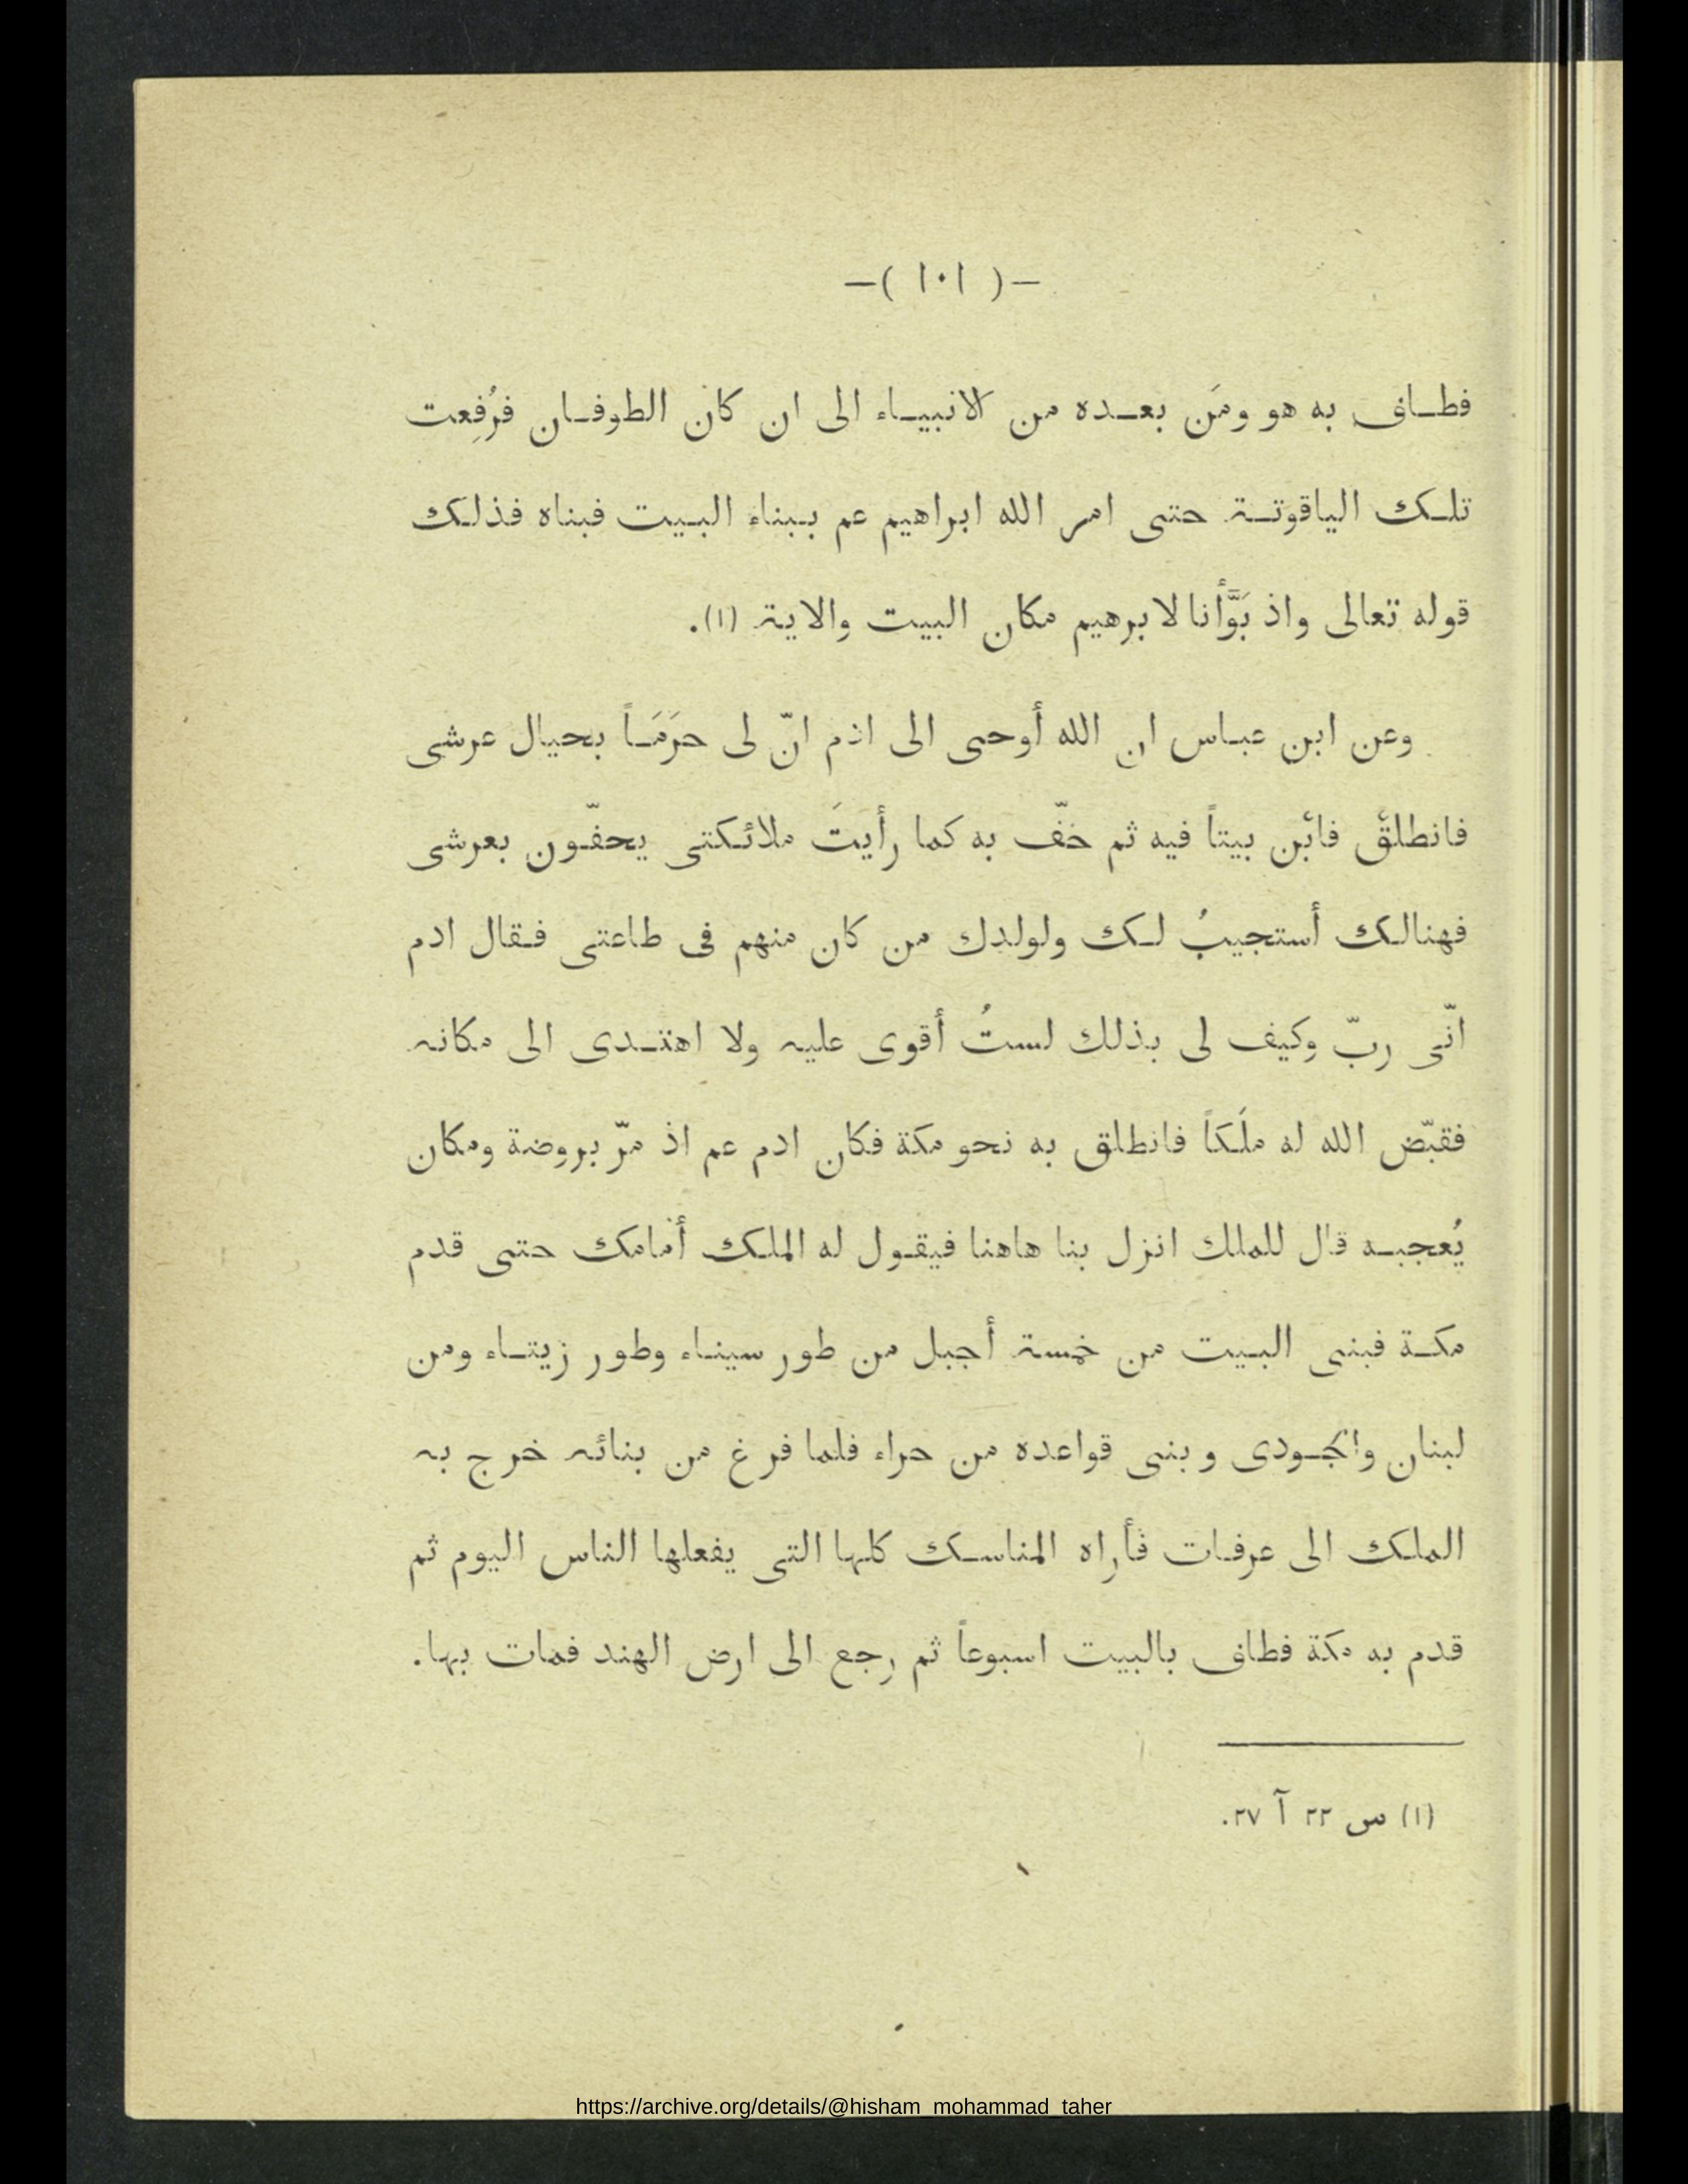 —( ١٠١ )—
فطاف به هو ومَن بعده من الانبياء الى ان كان الطوفان فرُفِعت
تلك الياقوتة حتى امر الله ابراهيم عم ببناء البيت فبناه فذلك
قوله تعالى واذ بَوَّأنا لابرهيم مكان البيت والاية (١).
وعن ابن عباس ان الله أوحى الى ادم انّ لى حرَمَاً بحيال عرشى
فانطلق فابْن بيتاً فيه ثم خفّ به كما رأيتَ ملائكتى يحفّون بعرشى
فهنالك أستجيبُ لك ولولدك من كان منهم فى طاعتى فقال ادم
انّى ربّ وكيف لى بذلك لستُ أقوى عليه ولا اهتدى الى مكانه
فقبّض الله له ملَكاً فانطلق به نحو مكة فكان ادم عم اذ مرّ بروضة ومكان
يُعجبه قال للملك انزل بنا هاهنا فيقول له الملك أمامك حتى قدم
مكة فبنى البيت من خمسة أجبل من طور سيناء وطور زيتاء ومن
لبنان والجودى وبنى قواعده من حراء فلما فرغ من بنائه خرج به
الملك الى عرفات فأراه المناسك كلها التى يفعلها الناس اليوم ثم
قدم به مكة فطاف بالبيت اسبوعاً ثم رجع الى ارض الهند فمات بها.
(١) س ٢٢ آ ٢٧.
https://archive.org/details/@hisham_mohammad_taher